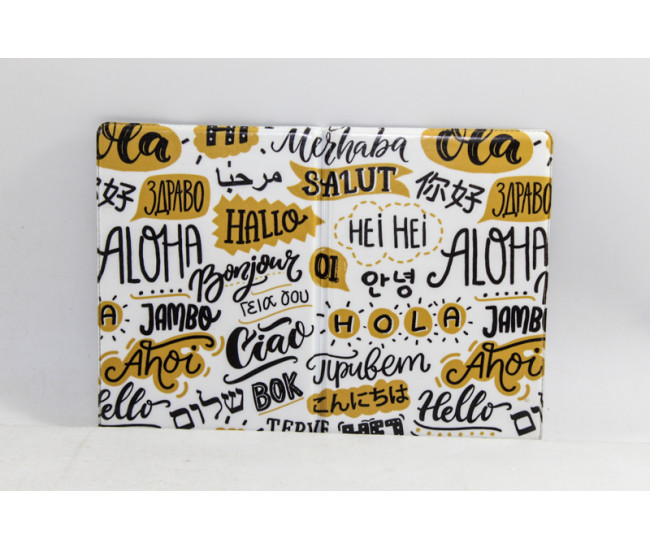 Ola
HI
Merhaba
Ola
مرحبا
SALUT
你好
ЗДРАВО
你好
ЗДРАВО
HALLO
HEI HEI
ALOHA
ALOHA
Bonjour
OI
안녕
Γεια σου
JAMBO
HOLA
JAMBO
Ciao
Ahoj
Привет
Ahoj
BOK
こんにちは
Hello
Hello
שלום
TERVE